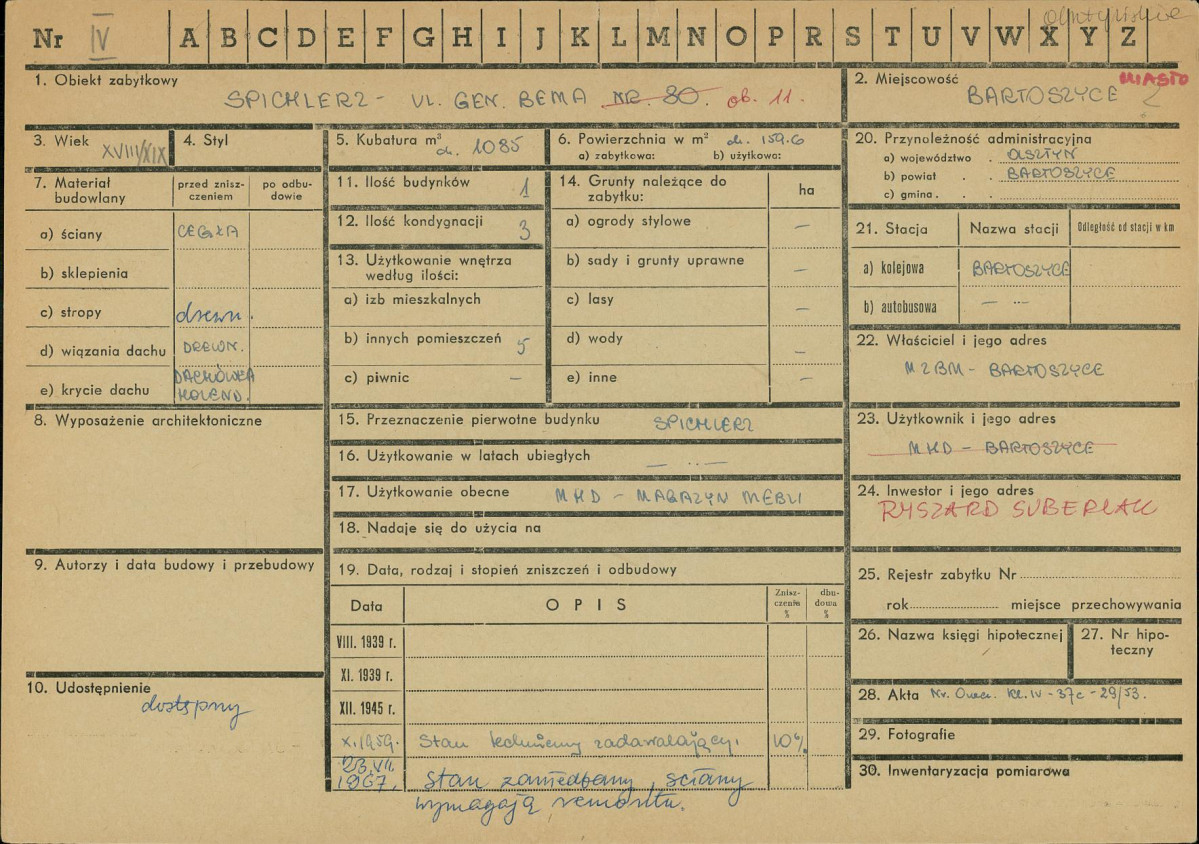 olsztyńskie
Nr IV A B C D E F G H I J K L M N O P R S T U V W X Y Z
1. Obiekt zabytkowy
SPICHLERZ - UL. GEN. BEMA NR. 80. ob. 11.
2. Miejscowość MIASTO
BARTOSZYCE
3. Wiek XVIII/XIX
4. Styl
5. Kubatura m³ ok. 1085
6. Powierzchnia w m² ok. 159.6
a) zabytkowa: b) użytkowa:
7. Materiał budowlany
przed znisz-
czeniem
po odbu-
dowie
a) ściany CEGŁA
b) sklepienia
c) stropy drewn.
d) wiązania dachu DREWN.
e) krycie dachu DACHÓWKA
HOLEND.
8. Wyposażenie architektoniczne
9. Autorzy i data budowy i przebudowy
10. Udostępnienie
dostępny
11. Ilość budynków 1
12. Ilość kondygnacji 3
13. Użytkowanie wnętrza
według ilości:
a) izb mieszkalnych
b) innych pomieszczeń 5
c) piwnic —
14. Grunty należące do
zabytku:
ha
a) ogrody stylowe —
b) sady i grunty uprawne —
c) lasy —
d) wody —
e) inne —
15. Przeznaczenie pierwotne budynku SPICHLERZ
16. Użytkowanie w latach ubiegłych — ·· —
17. Użytkowanie obecne MHD - MAGAZYN MEBLI
18. Nadaje się do użycia na
19. Data, rodzaj i stopień zniszczeń i odbudowy
Data
OPIS
Znisz-
czenia
%
dbu-
dowa
%
VIII. 1939 r.
XI. 1939 r.
XII. 1945 r.
X.1959. Stan techniczny zadawalający. 10%
23.VII.
1967. Stan zaniedbany, ściany
wymagają remontu.
20. Przynoleżność administracyjna
a) województwo . OLSZTYN
b) powiat . . BARTOSZYCE
c) gmina . .
21. Stacja
Nazwa stacji
Odległość od stacji w km
a) kolejowa BARTOSZYCE
b) autobusowa — ·· —
22. Właściciel i jego adres
MZBM - BARTOSZYCE
23. Użytkownik i jego adres
MHD - BARTOSZYCE
24. Inwestor i jego adres
RYSZARD SUBERLAK
25. Rejestr zabytku Nr
rok miejsce przechowywania
26. Nazwa księgi hipotecznej
27. Nr hipo-
teczny
28. Akta Kl.IV-37c-29/53.
29. Fotografie
30. Inwentaryzacja pomiarowa